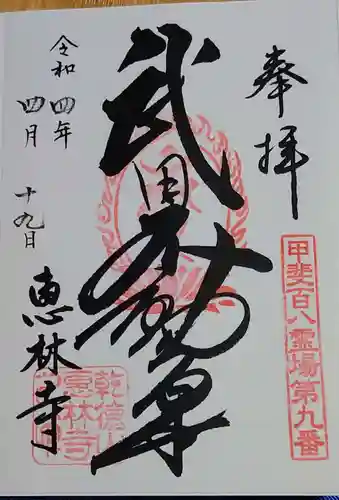 奉拝
甲斐百八霊場第九番
武田不動尊
恵林寺
乾徳山
恵林寺
令和四年
四月 十九日